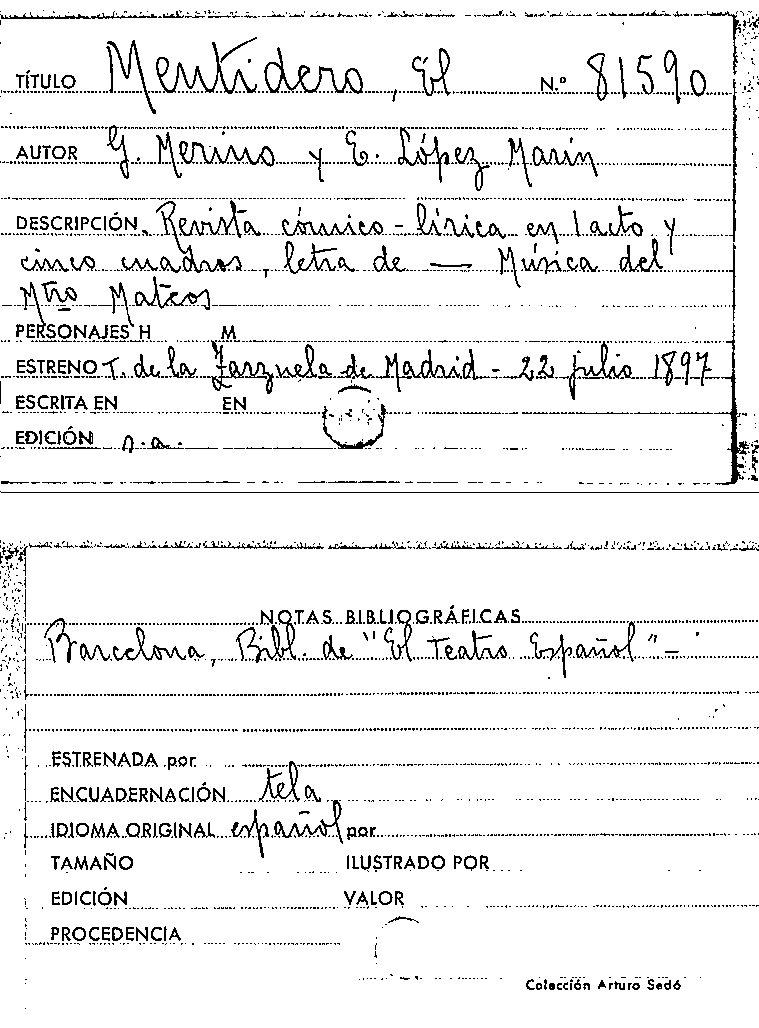 TÍTULO Mentidero, El N.º 81590
AUTOR G. Merino y E. López Marín
DESCRIPCIÓN. Revista cómico-lírica en 1 acto y
cinco cuadros, letra de — Música del
Mtro Mateos
PERSONAJES H M
ESTRENO T. de la Zarzuela de Madrid - 22 julio 1897
ESCRITA EN EN
EDICIÓN s.a.
NOTAS BIBLIOGRÁFICAS
Barcelona, Bibl. de "El Teatro Español" -
ESTRENADA por
ENCUADERNACIÓN tela
IDIOMA ORIGINAL español por
TAMAÑO ILUSTRADO POR
EDICIÓN VALOR
PROCEDENCIA
Colección Arturo Sedó